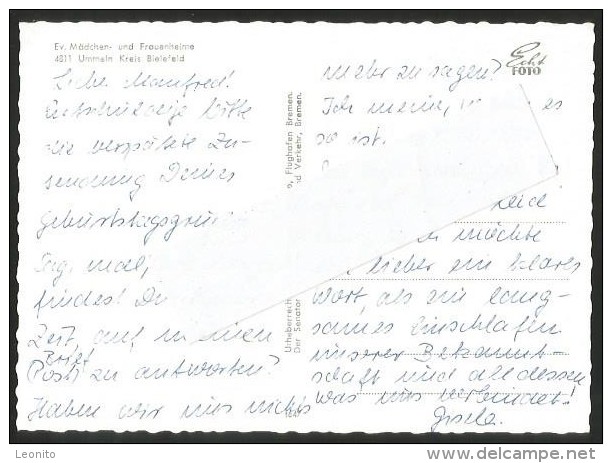 Ev. Mädchen- und Frauenheime
4811 Ummeln Kreis Bielefeld
Lieber Manfred!
Entschuldige bitte
die verspätete Zu-
sendung Deines
Geburtstagsgru
Sag mal,
findest Du
Zeit, auf meinen
Brief
(Post) zu antworten?
Haben wir uns nichts
mehr zu sagen?
Ich meine, es
so ist.
möchte
lieber ein klares
Wort, als ein lang-
sames Einschlafen
unserer Bekannt-
schaft und all dessen
was uns verbindet!
Gisela.
Echt
FOTO
o, Flughafen Bremen.
nd Verkehr, Bremen.
Urheberrech
Der Senator
Leonito
www.delcampe.net